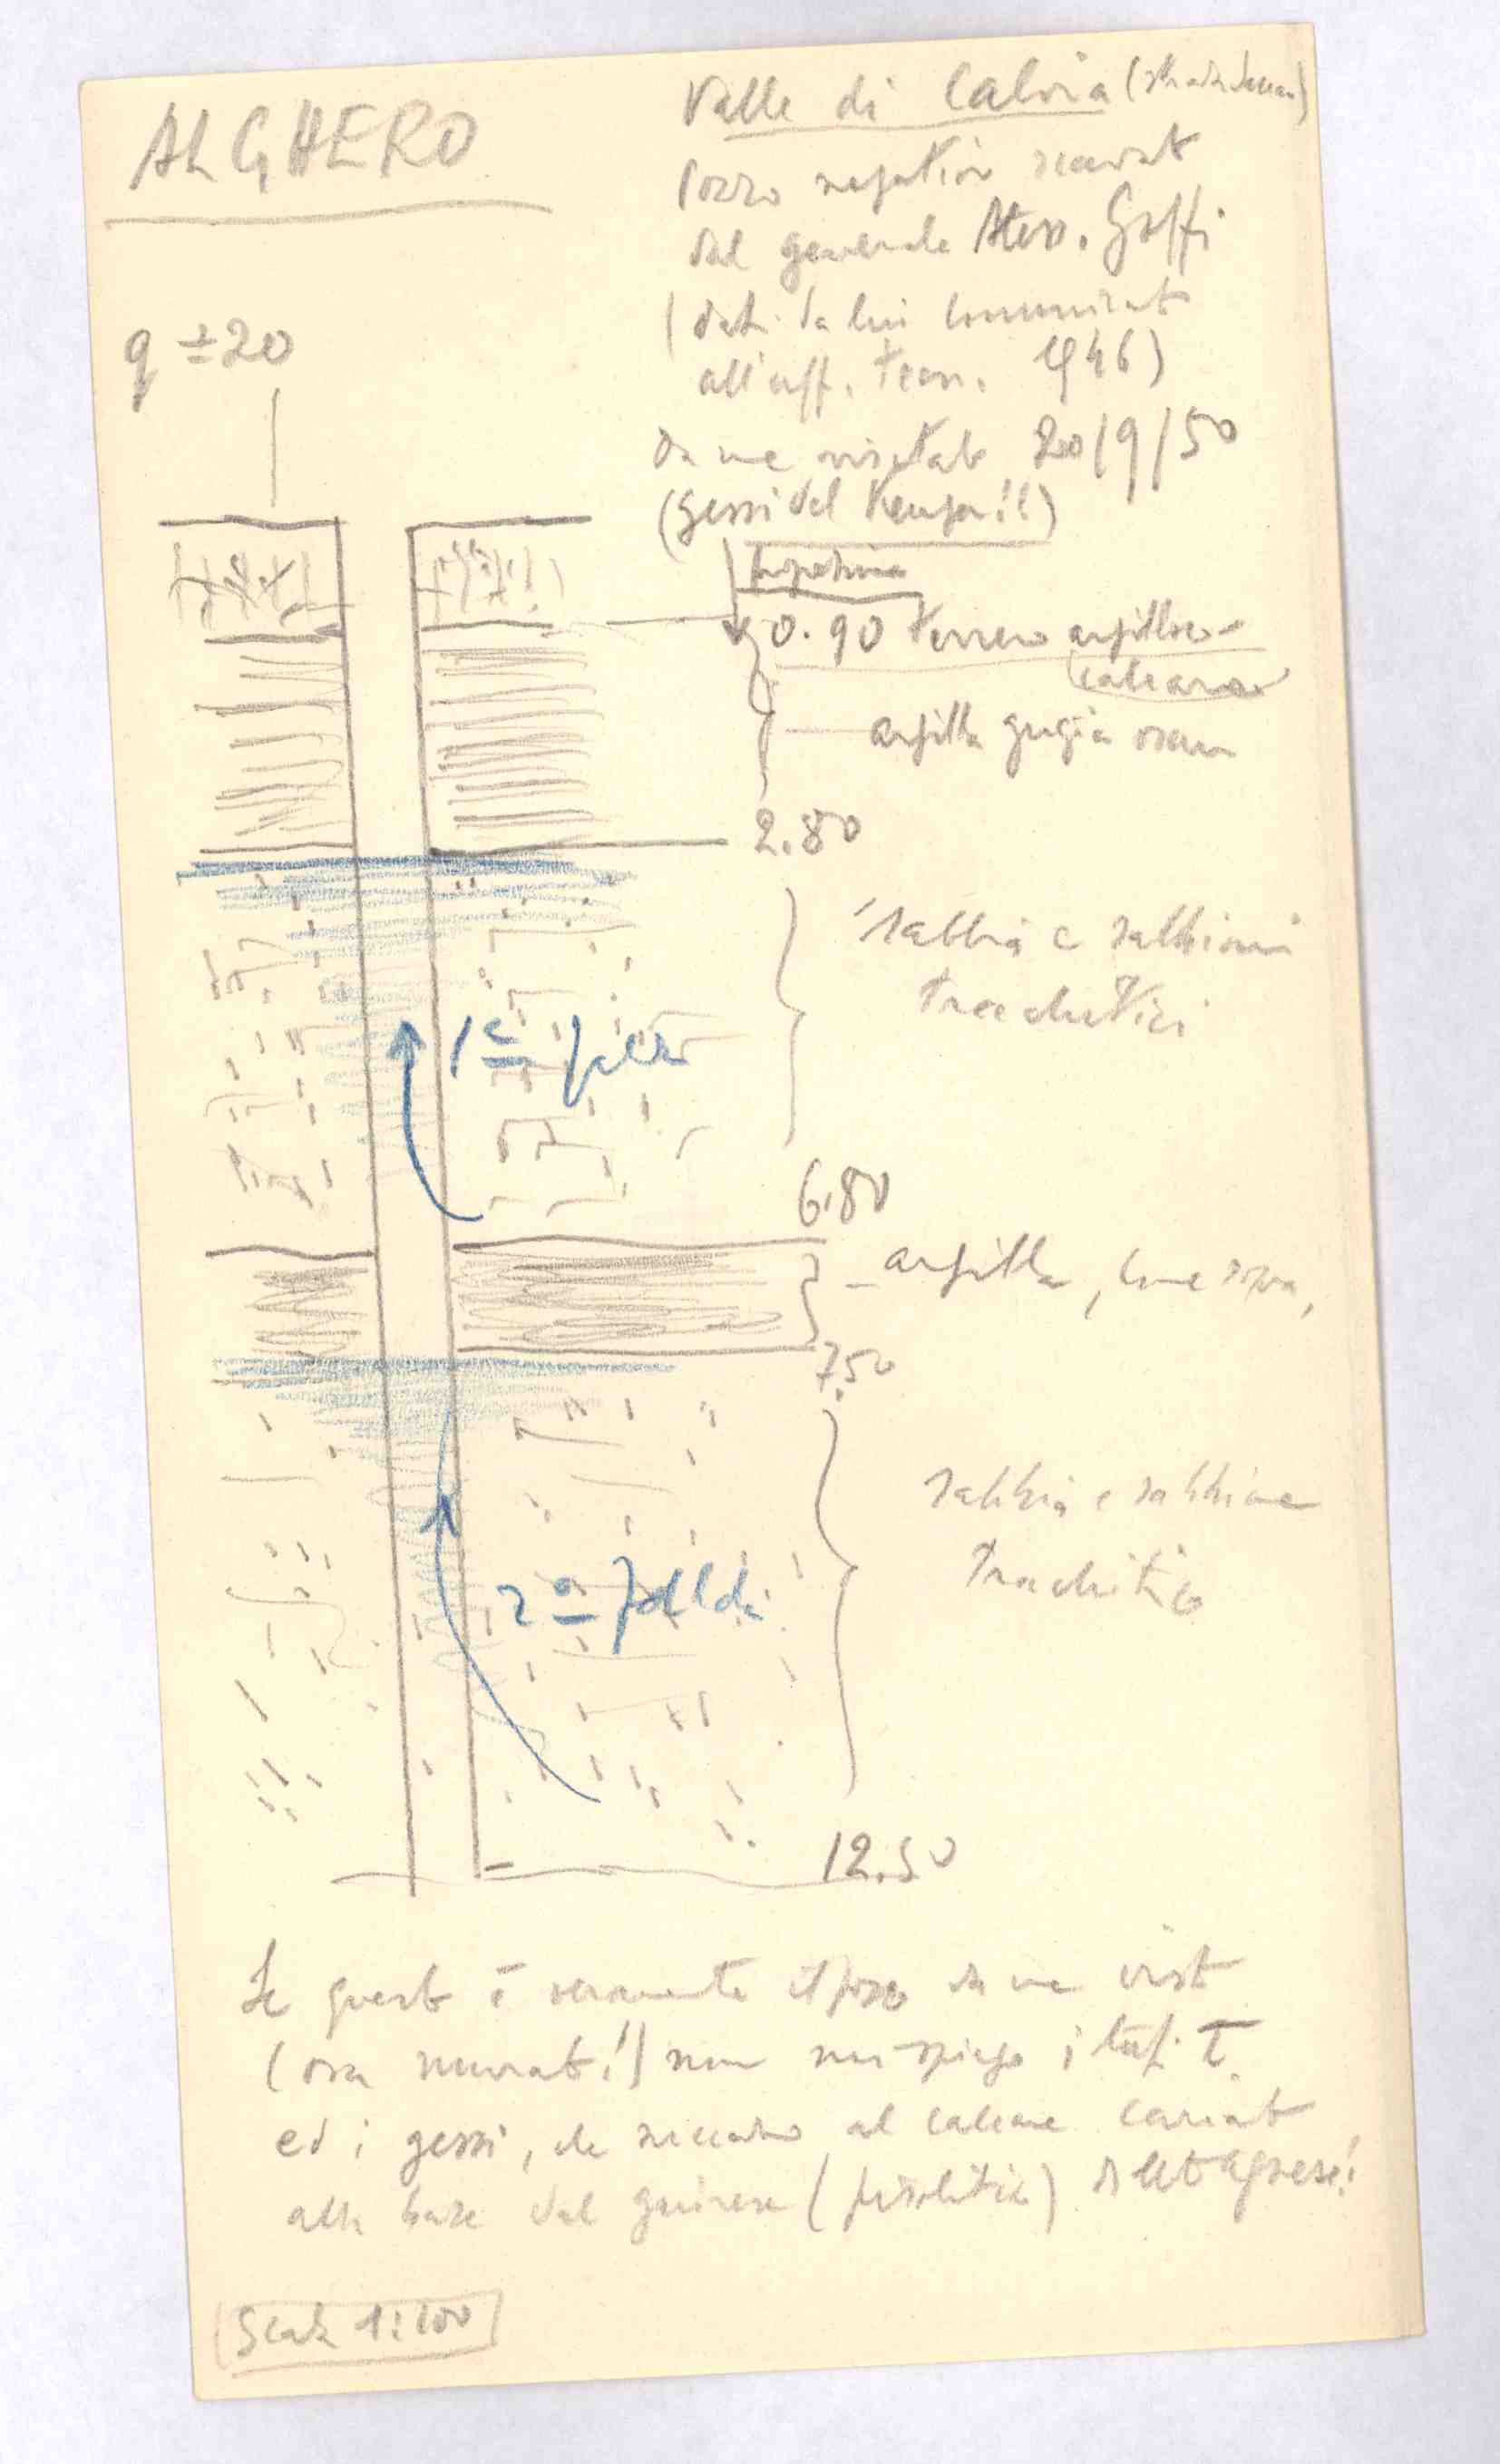 ALGHERO
Valle di Calvia
pozzo negativo scavato
dal generale Stev. Goffi
(dati da lui comunicati
all'uff. tecn. 1946)
q ± 20
da me visitato 20/9/50
(gessi del Keuper!!)
0.90 terreno argilloso-
calcareo
argilla grigia scura
2.80
sabbia e sabbioni
trachitici
1ª falda
6.80
argilla, come sopra,
7.50
sabbia e sabbione
trachitico
2ª falda
12.50
Se questo è veramente il pozzo da me visto
(ora murato!) non mi spiego i tufi T
ed i gessi, che al calcare cariato
alla base del giurese (pisolitico)
Scala 1:100